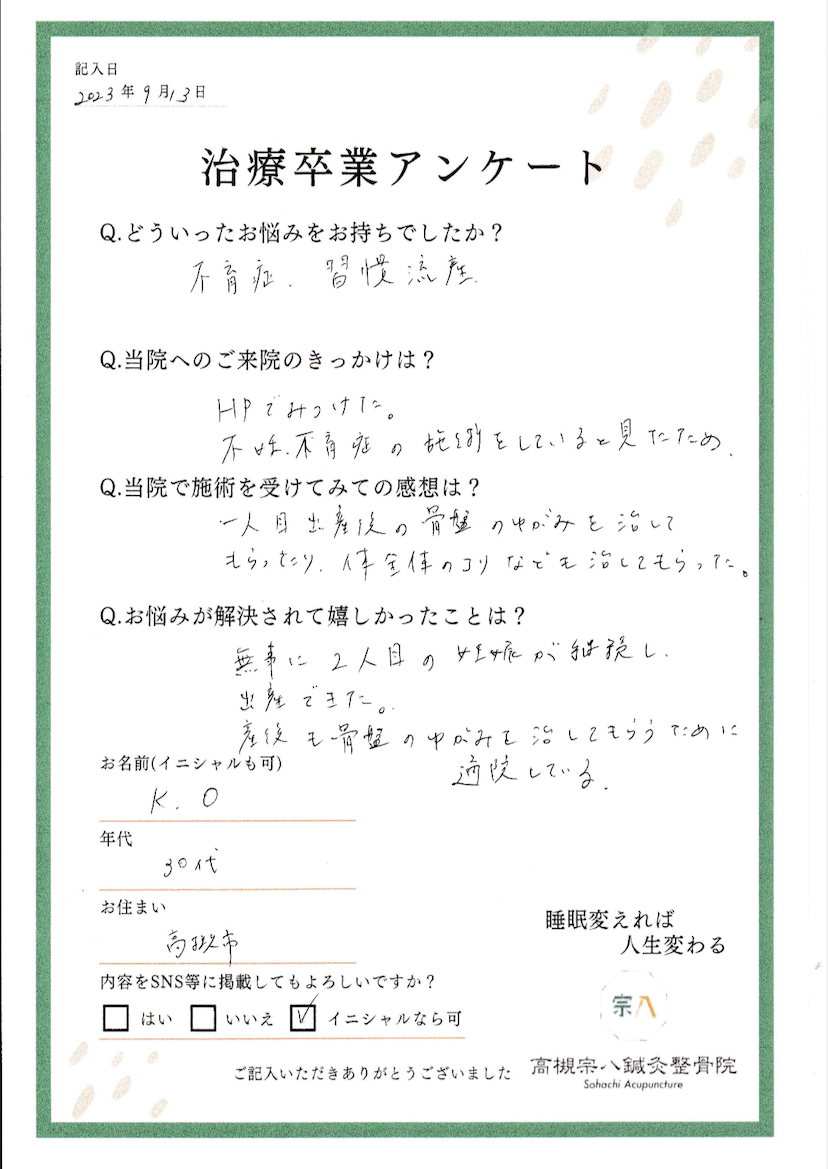 記入日
2023年9月13日
治療卒業アンケート
Q.どういったお悩みをお持ちでしたか？
不育症、習慣流産
Q.当院へのご来院のきっかけは？
HPでみつけた。
不妊、不育症の施術をしていると見たため、
Q.当院で施術を受けてみての感想は？
一人目出産後の骨盤のゆがみを治して
もらったり、体全体のコリなども治してもらった。
Q.お悩みが解決されて嬉しかったことは？
無事に2人目の妊娠が継続し、
出産できた。
産後も骨盤のゆがみを治してもらうために
通院している。
お名前(イニシャルも可)
K.O
年代
30代
お住まい
高槻市
内容をSNS等に掲載してもよろしいですか？
はい いいえ イニシャルなら可
睡眠変えれば
人生変わる
宗八
ご記入いただきありがとうございました
高槻宗八鍼灸整骨院
Sohachi Acupuncture